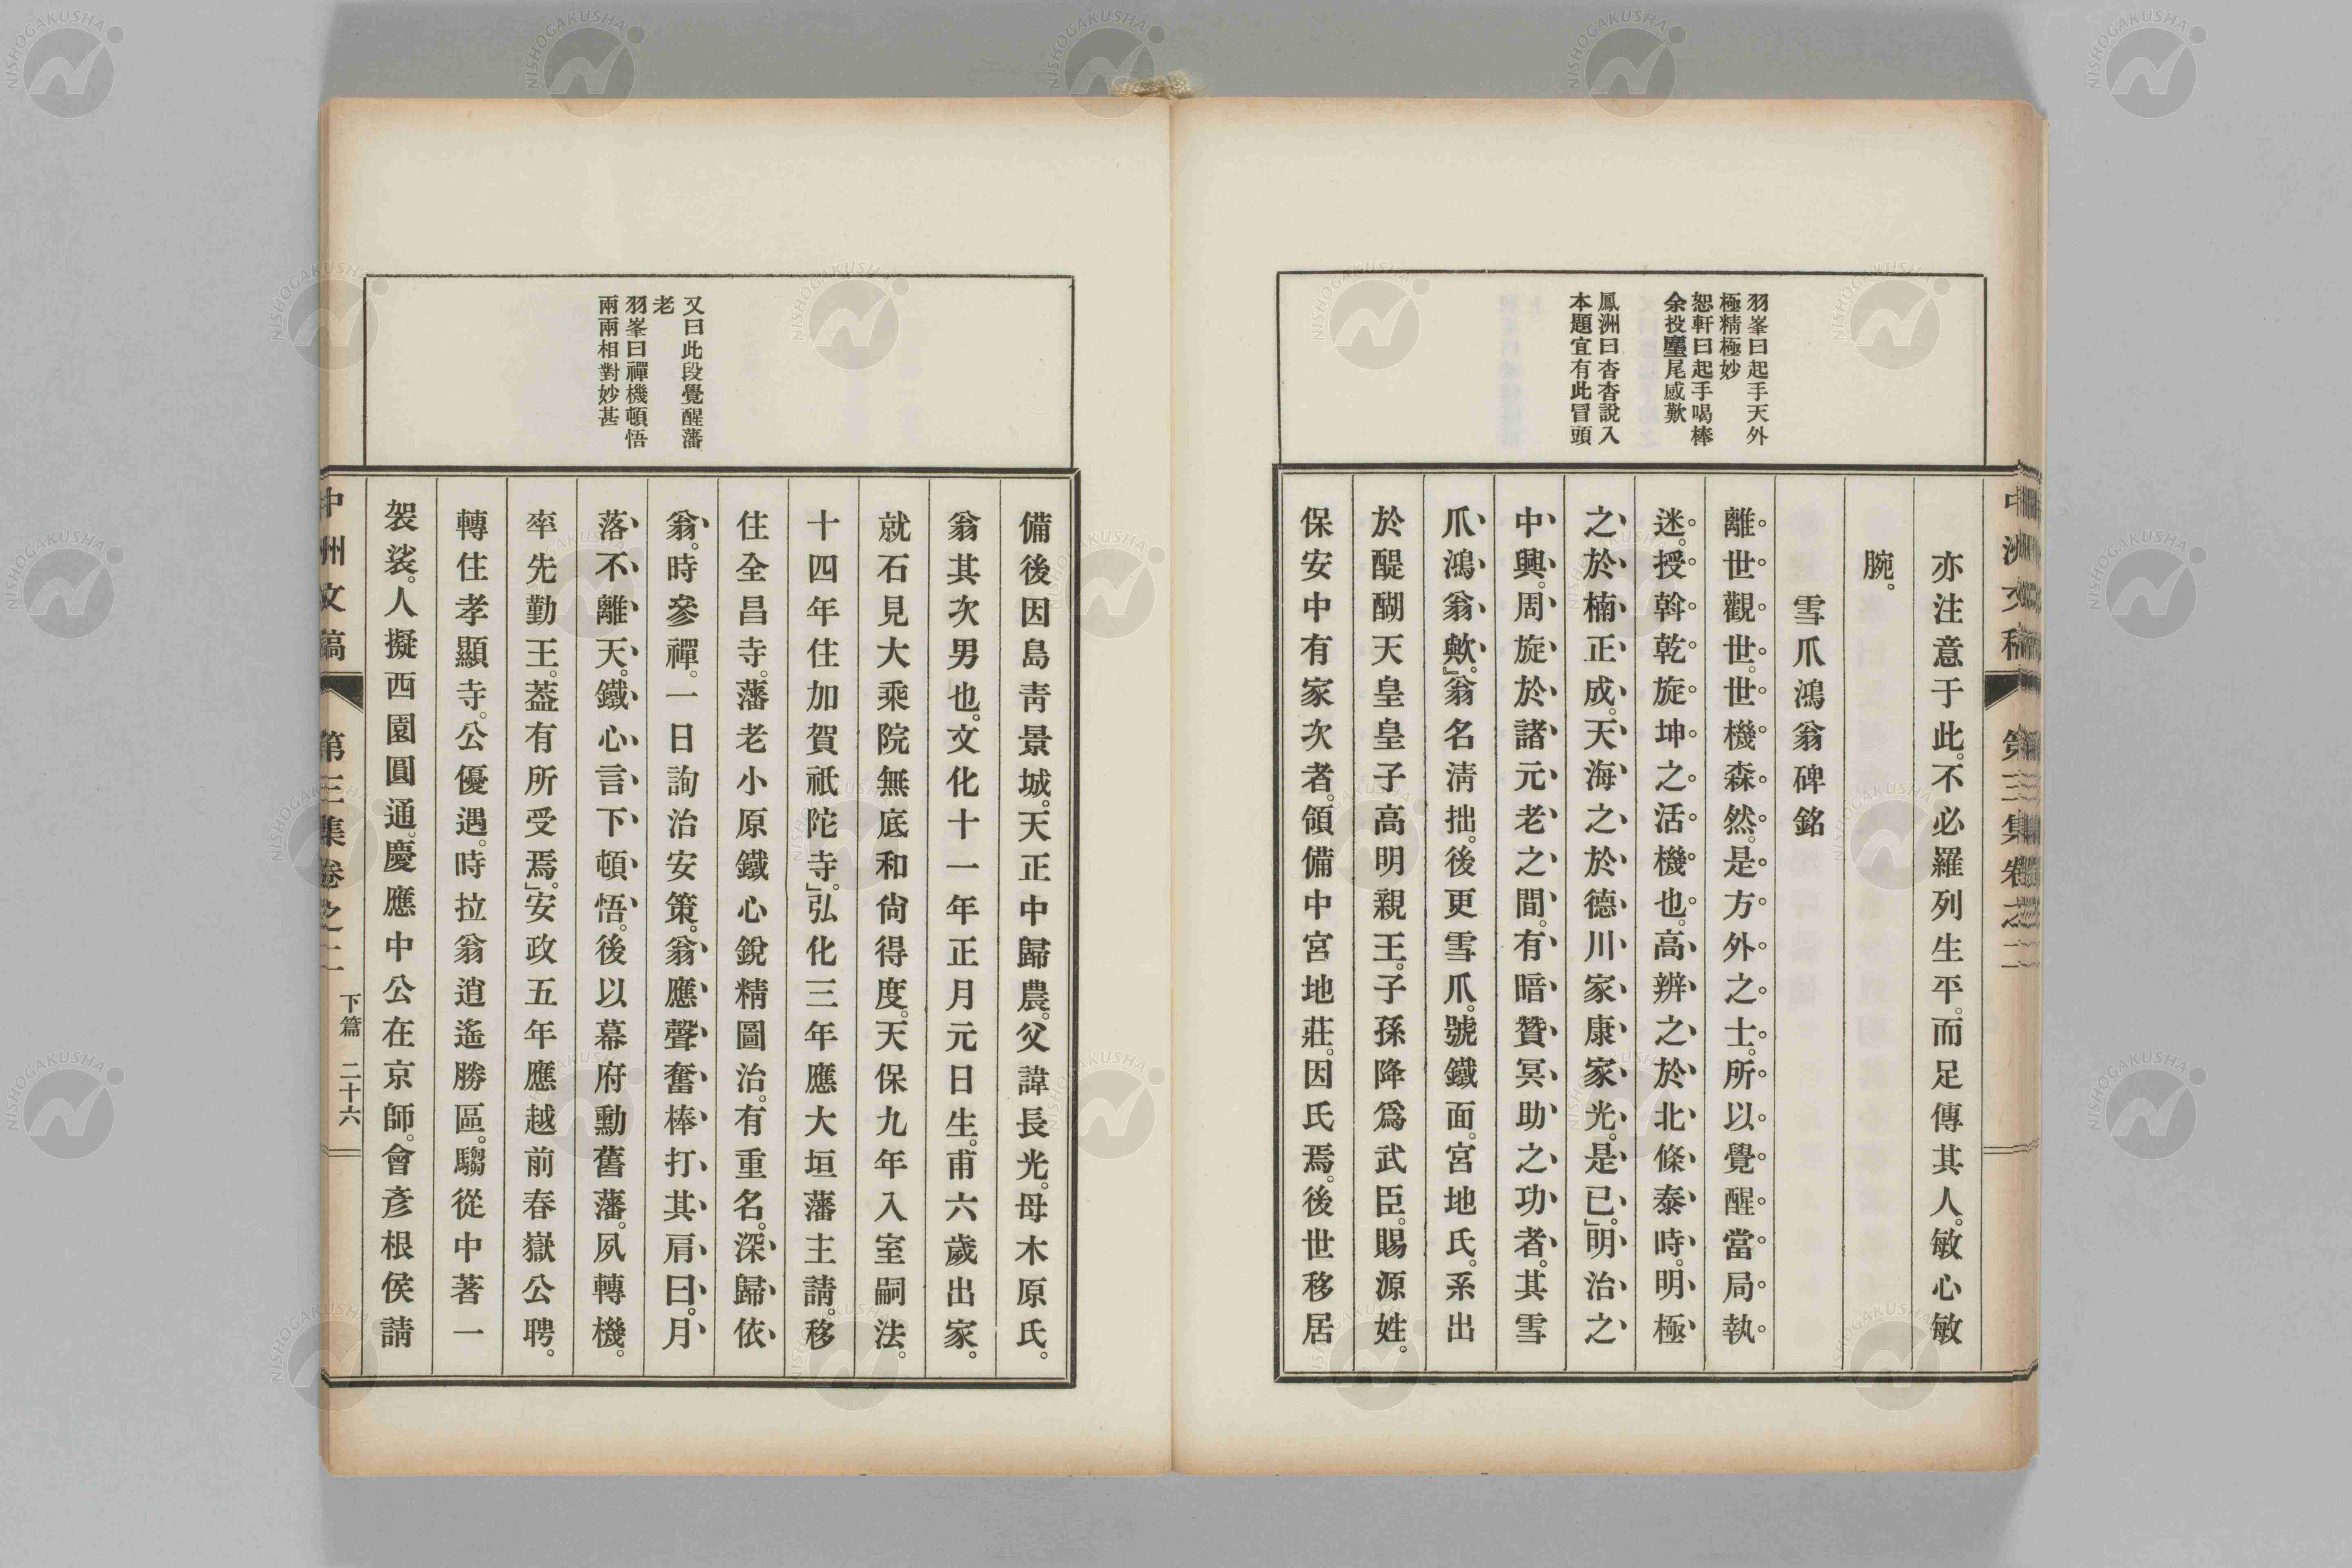 羽峯曰起手天外
極精極妙
恕軒曰起手喝棒
余投麈尾感歎
鳳洲曰杳杳說入
本題宜有此冒頭
亦注意于此。不必羅列生平。而足傳其人。敏心敏
腕。
雪爪鴻翁碑銘
離世觀世。世機森然。是方外之士。所以覺醒當局執
迷。授斡乾旋坤之活機也。高辨之於北條泰時。明極
之於楠正成。天海之於德川家康家光。是已。」明治之
中興。周旋於諸元老之間。有暗贊冥助之功者。其雪
爪鴻翁歟。」翁名淸拙。後更雪爪。號鐵面。宮地氏。系出
於醍醐天皇皇子高明親王。子孫降爲武臣。賜源姓。
保安中有家次者。領備中宮地莊。因氏焉。後世移居
又曰此段覺醒藩
老
羽峯曰禪機頓悟
兩兩相對妙甚
備後因島靑景城。天正中歸農。父諱長光。母木原氏。
翁其次男也。文化十一年正月元日生。甫六歲出家。
就石見大乘院無底和尙得度。天保九年入室嗣法。
十四年住加賀祇陀寺。」弘化三年應大垣藩主請。移
住全昌寺。藩老小原鐵心銳精圖治。有重名。深歸依
翁。時參禪。一日詢治安策。翁應聲奮棒打其肩曰。月
落不離天。鐵心言下頓悟。後以幕府勳舊藩。夙轉機。
率先勤王。葢有所受焉。」安政五年應越前春嶽公聘。
轉住孝顯寺。公優遇。時拉翁逍遙勝區。騶從中著一
袈裟。人擬西園圓通。慶應中公在京師。會彥根侯請
中洲文稿
第三集卷之二
下篇 二十六